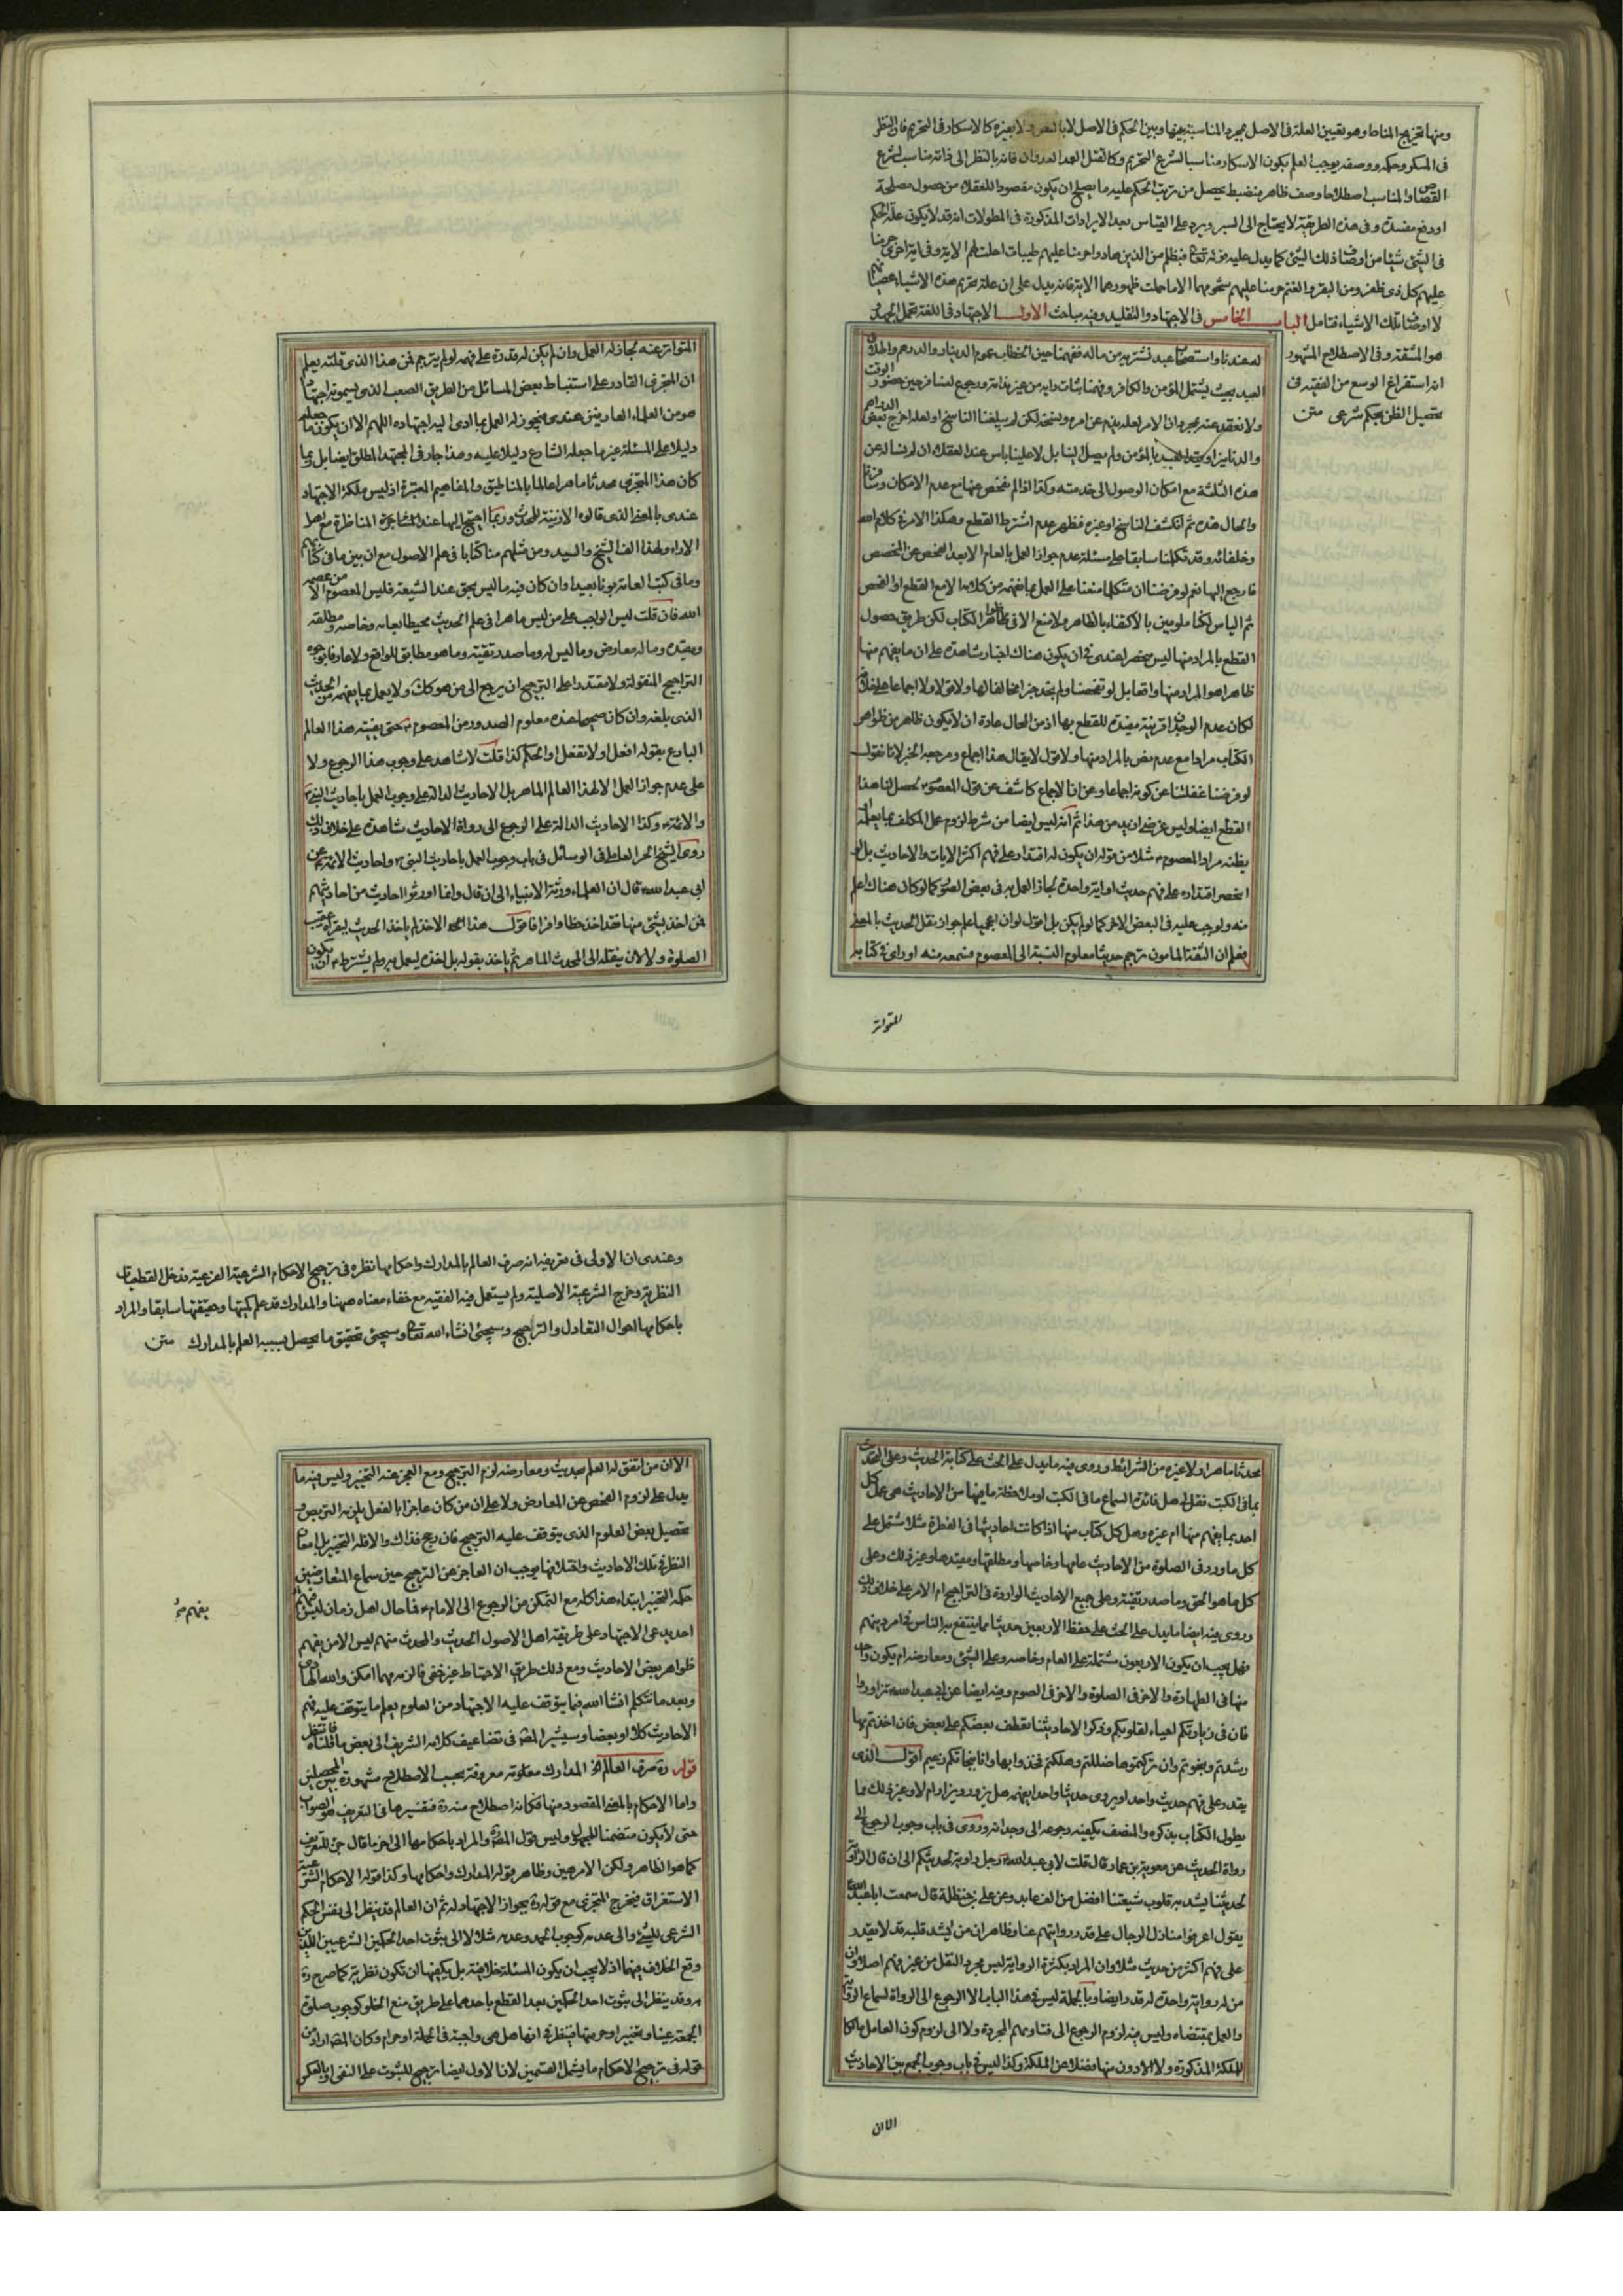 ومنها تخريج المناط وهو تعيين العلة فى الاصل بمجرد المناسبة بينها وبين الحكم فى الاصل لا بالنص ولا بغيره كالاسكار فى التحريم فان النظر
فى المسكر وحكمه ووصفه يوجب العلم بكون الاسكار مناسبا لشرع التحريم وكالقتل العمد العدوان فانه بالنظر الى ذاته مناسب لشرع
القصاص والمناسب اصطلاحا وصف ظاهر منضبط يحصل من ترتب الحكم عليه ما يصلح ان يكون مقصودا للعقلاء من حصول مصلحة
او دفع مفسدة وفى هذه الطريقة لا يحتاج الى السبر ويرد على القياس بعد الايرادات المذكورة فى المطولات انه قد لا يكون علة الحكم
فى الشئ شيئا من اوصاف ذلك الشئ كما يدل عليه قوله تعالى فبظلم من الذين هادوا حرمنا عليهم طيبات احلت لهم الاية وفى اية اخرى حرمنا
عليهم كل ذى ظفر ومن البقر والغنم حرمنا عليهم شحومهما الا ما حملت ظهورهما الاية فانه يدل على ان علة تحريم هذه الاشياء عصيانهم
لا اوصاف تلك الاشياء فتامل الباب الخامس فى الاجتهاد والتقليد وفيه مباحث الاول الاجتهاد فى اللغة تحمل الجهد
هو المشقة وفى الاصطلاح المشهور
انه استفراغ الوسع من الفقيه فى
تحصيل الظن بحكم شرعى متن
العبد بحيث يشتمل المؤمن والكافر
ولا نعتقد عنه بمجرد ان الامر لعله
والدنانير او بالمؤمن ولم يصل الينا بل لا علينا باس عند العقلاء ان لم نسال عن
هذه الثلثة مع امكان الوصول الى خدمته وكذا اذا لم نفحص عنها مع عدم الامكان
والحال هذه ثم انكشف الناسخ او غيره فظهر عدم اشتراط القطع وهكذا الامر فى كلام الله
وخلفائه وقد تكلمنا سابقا على مسئلة عدم جواز العمل بالعام الا بعد الفحص عن المخصص
فارجع اليها نعم لو فرضنا ان متكلما منعنا على العمل بما نفهمه من كلامه الا مع القطع او الفحص
ثم الياس لكنا ملومين بالاكتفاء بالظاهر ولا منع الا فى ظاهر الكتاب لكن طريق حصول
القطع بالمراد منها ليس منحصرا عندى فى ان يكون هناك اخبار شاهدة على ان ما يفهم منها
ظاهرا هو المراد منها واقعا بل لو تفحصنا ولم نجد خبرا مخالفا لها ولا قولا ولا اجماعا على خلافه
لكان عدم الوجدان قرينة مفيدة للقطع بها اذ من المحال عادة ان لا يكون ظاهر من ظواهر
الكتاب مرادا مع عدم نص بالمراد منها ولا قول لا يقال هذا اجماع ومرجعه الخبر لانا نقول
لو فرضنا غفلتنا عن كونه اجماعا وعن ان الاجماع كاشف عن قول المعصوم يحصل لنا هذا
القطع ايضا وليس غرضى ازيد من هذا ثم انه ليس ايضا من شرط لزوم عمل المكلف بما يعلمه او
يظنه مراد المعصوم مثلا من قوله ان يكون له اقتدار على فهم اكثر الايات والاحاديث بل لو
انحصر اقتداره على فهم حديث او اية واحدة لجاز العمل به فى بعض الصور كما لو كان هناك اعلم
منه ولوجب عليه فى البعض الاخر كما لو لم يكن بل اقول لو ان اعجميا علم جواز نقل الحديث بالمعنى
وعلم ان الثقة المامون ترجم حديثا معلوم النسبة الى المعصوم فسمعه منه او راى فى كتابه
المتواتر
المتواتر عنه لجاز له العمل وان لم يكن له قدرة على فهمه لو لم يترجم فمن هذا الذى قلته يعلم
ان المتجزى القادر على استنباط بعض المسائل من الطريق الصعب الذى يسمونه اجتهادا
هو من العلماء العارفين عندى فيجوز له العمل بما ادى اليه اجتهاده اللهم الا ان يكون ما جعله
دليلا على المسئلة غير ما جعله الشارع دليلا عليه وهذا جار فى المجتهد المطلق ايضا بل ربما
كان هذا المتجزى محدثا ماهرا عالما بالمناطيق والمفاهيم المعتبرة اذ ليس ملكة الاجتهاد
عندى بالمعنى الذى قالوه الا زينة للمحدث وربما احتيج اليها عند المشاجرة والمناظرة مع اهل
الاراء ولهذا الف الشيخ والسيد ومن مثلهم منا كتابا فى علم الاصول مع ان بين ما فى كتابهم
وما فى كتب العامة بونا بعيدا وان كان فيه ما ليس بحق عند الشيعة فليس المعصوم الا من عصمه
الله فان قلت ليس الواجب على من ليس ماهرا فى علم الحديث محيطا بعامه وخاصه ومطلقه
ومقيده وما له معارض وما ليس له وما صدر تقية وما هو مطابق للواقع ولا عارفا بوجوه
التراجيح المنقولة ولا مقتدرا على الترجيح ان يرجع الى من هو كك ولا يعمل بما يفهمه من الحديث
الذى بلغه وان كان صحيحا عنده معلوم الصدور من المعصوم حتى يفتيه هذا العالم
البارع بقوله افعل او لا تفعل او الحكم كذا قلت لا شاهد على وجوب هذا الرجوع ولا
على عدم جواز العمل الا لهذا العالم الماهر بل الاحاديث الدالة على وجوب العمل باحاديث النبى
والائمة وكذا الاحاديث الدالة على الرجوع الى رواة الاحاديث شاهدة على خلاف ذلك
روى الشيخ الحر العاملى فى الوسائل فى باب وجوب العمل باحاديث النبى واحاديث الائمة عن
ابى عبد الله قال ان العلماء ورثة الانبياء الى ان قال وانما اورثوا احاديث من احاديثهم
فمن اخذ بشئ منها فقد اخذ حظا وافرا فاقول هذا الاخذ لم ياخذ الحديث ليقراه عقيب
الصلوة ولا لان ينقله الى المحدث الماهر ثم ياخذ بقوله بل اخذه ليعمل به ولم يشترط ان يكون
محدثا ماهرا ولا غيره من الشرائط وروى فيه ما يدل على الحث على كتابة الحديث وعلى التحدث
بما فى الكتب فنقول هل فائدة السماع ما فى الكتب او ملاحظة ما فيها من الاحاديث هى عمل كل
احد بما يفهم منها ام غيره وهل كل كتاب منها اذا كانت احاديثها فى الفطرة مثلا مشتمل على
كل ما ورد فى الصلوة من الاحاديث عامها وخاصها ومطلقها ومقيدها وغير ذلك وعلى
كل ما هو الحق وما صدر تقية وعلى جميع الاحاديث الواردة فى التراجيح ام الامر على خلاف ذلك
وروى فيه ايضا ما يدل على الحث على حفظ الاربعين حديثا مما ينتفع به الناس فى امر دينهم
فهل يجب ان يكون الاربعون مشتملة على العام وخاصه وعلى الشئ ومعارضه ام يكون واحد
منها فى الطهارة والاخر فى الصلوة والاخر فى الصوم وفيه ايضا عن ابى عبد الله تزاوروا
فان فى زيارتكم احياء لقلوبكم وذكرا لاحاديثنا تعطف بعضكم على بعض فان اخذتم بها
رشدتم ونجوتم وان تركتموها ضللتم وهلكتم فخذوا بها وانا بنجاتكم زعيم اقول الذى
يقدر على فهم حديث واحد او يروى حديثا واحدا يفهمه هل يزور ويزار ام لا وغير ذلك مما
يطول الكتاب بذكره والمنصف يكفيه رجوعه الى وجدانه وروى فى باب وجوب الرجوع الى
رواة الحديث عن معوية بن عمار قال قلت لابى عبد الله رجل راوية لحديثكم الى ان قال الراوية
لحديثنا يشد به قلوب شيعتنا افضل من الف عابد وعن على بن حنظلة قال سمعت ابا عبد الله
يقول اعرفوا منازل الرجال على قدر روايتهم عنا وظاهر ان من يشد قلبه قد لا يقدر
على فهم اكثر من حديث مثلا وان المراد بكثرة الرواية ليس مجرد النقل من غير فهم اصلا وان
من له رواية واحدة له قدر ايضا وبالجملة ليس فى هذا الباب الا الرجوع الى الرواة لسماع الرواية
والعمل بمقتضاه وليس فيه لزوم الرجوع الى فتاويهم المجردة ولا الى لزوم كون العامل مالكا
للملكة المذكورة ولا الادون منها فضلا عن الملكة وكذا ليس فى باب وجوب الجمع بين الاحاديث
الا ان
وعندى ان الاولى فى تعريفه انه صرف العالم بالمدارك واحكامها نظره فى ترجيح الاحكام الشرعية الفرعية فدخل القطعيات
النظرية وخرج الشرعية الاصلية ولم يستعمل فيه الفقيه مع خفاء معناه ههنا والمدارك قد علم كميتها وحقيقتها سابقا والمراد
باحكامها احوال التعادل والتراجيح وسيجئ انشاء الله تعالى وسيجئ تحقيق ما يحصل بسببه العلم بالمدارك متن
الا ان من اتفق له العلم بحديث ومعارضه لزم الترجيح ومع العجز عنه التخيير وليس فيه ما
يدل على لزوم الفحص عن المعارض ولا على ان من كان عاجزا بالفعل يلزمه التربص و
تحصيل بعض العلوم الذى يتوقف عليه الترجيح فان رجح فذاك والا فله التخيير بل امعان
النظر فى تلك الاحاديث واختلافها يوجب ان العاجز عن الترجيح حين سماع المتعارضين
حكمه التخيير ابتداء هذا كله مع التمكن من الرجوع الى الامام فما حال اهل زمان ليس فيهم
احد يدعى الاجتهاد على طريقة اهل الاصول الحديث والمحدث منهم ليس الا من يفهم
ظواهر بعض الاحاديث ومع ذلك طريق الاحتياط غير خفى فالزمه مهما امكن والله الهادى
وبعد ما نتكلم انشا الله فيما يتوقف عليه الاجتهاد من العلوم يعلم ما يتوقف عليه فهم
الاحاديث كلا او بعضا وسيشير المص فى تضاعيف كلامه الشريف الى بعض ما قلناه فانتظر
قوله صرف العالم الخ المدارك معلومة معروفة بحسب الاصطلاح مشهورة بين المحصلين
واما الاحكام بالمعنى المقصود منها فكانه اصطلاح منه فتفسيرها فى التعريف هو الصواب
حتى لا يكون متضمنا للمجهول وليس قول المص والمراد باحكامها الى اخر ما قال جزء للتعريف
كما هو الظاهر ولكن الامر هين وظاهر قوله المدارك واحكامها وكذا قوله الاحكام الشرعية
الاستغراق فيخرج المتجزى مع قوله بجواز الاجتهاد له ثم ان العالم قد ينظر الى نفس الحكم
الشرعى للشئ والى عدمه كوجوب الحمد وعدمه مثلا لا الى ثبوت احد الحكمين الشرعيين اللذين
وقع الخلاف فيهما اذ لا يجب ان يكون المسئلة خلافية بل يكفيها ان تكون نظرية كما صرح
به وقد ينظر الى ثبوت احد الحكمين بعد القطع باحدهما على طريق منع الخلو كوجوب صلوة
الجمعة عينا وتخييرا وحرمتها فينظر فى انها هل هى واجبة فى الجملة او حرام وكان المص اراد من
قوله فى ترجيح الاحكام ما يشمل القسمين لان الاول ايضا ترجيح للثبوت على النفى او بالعكس